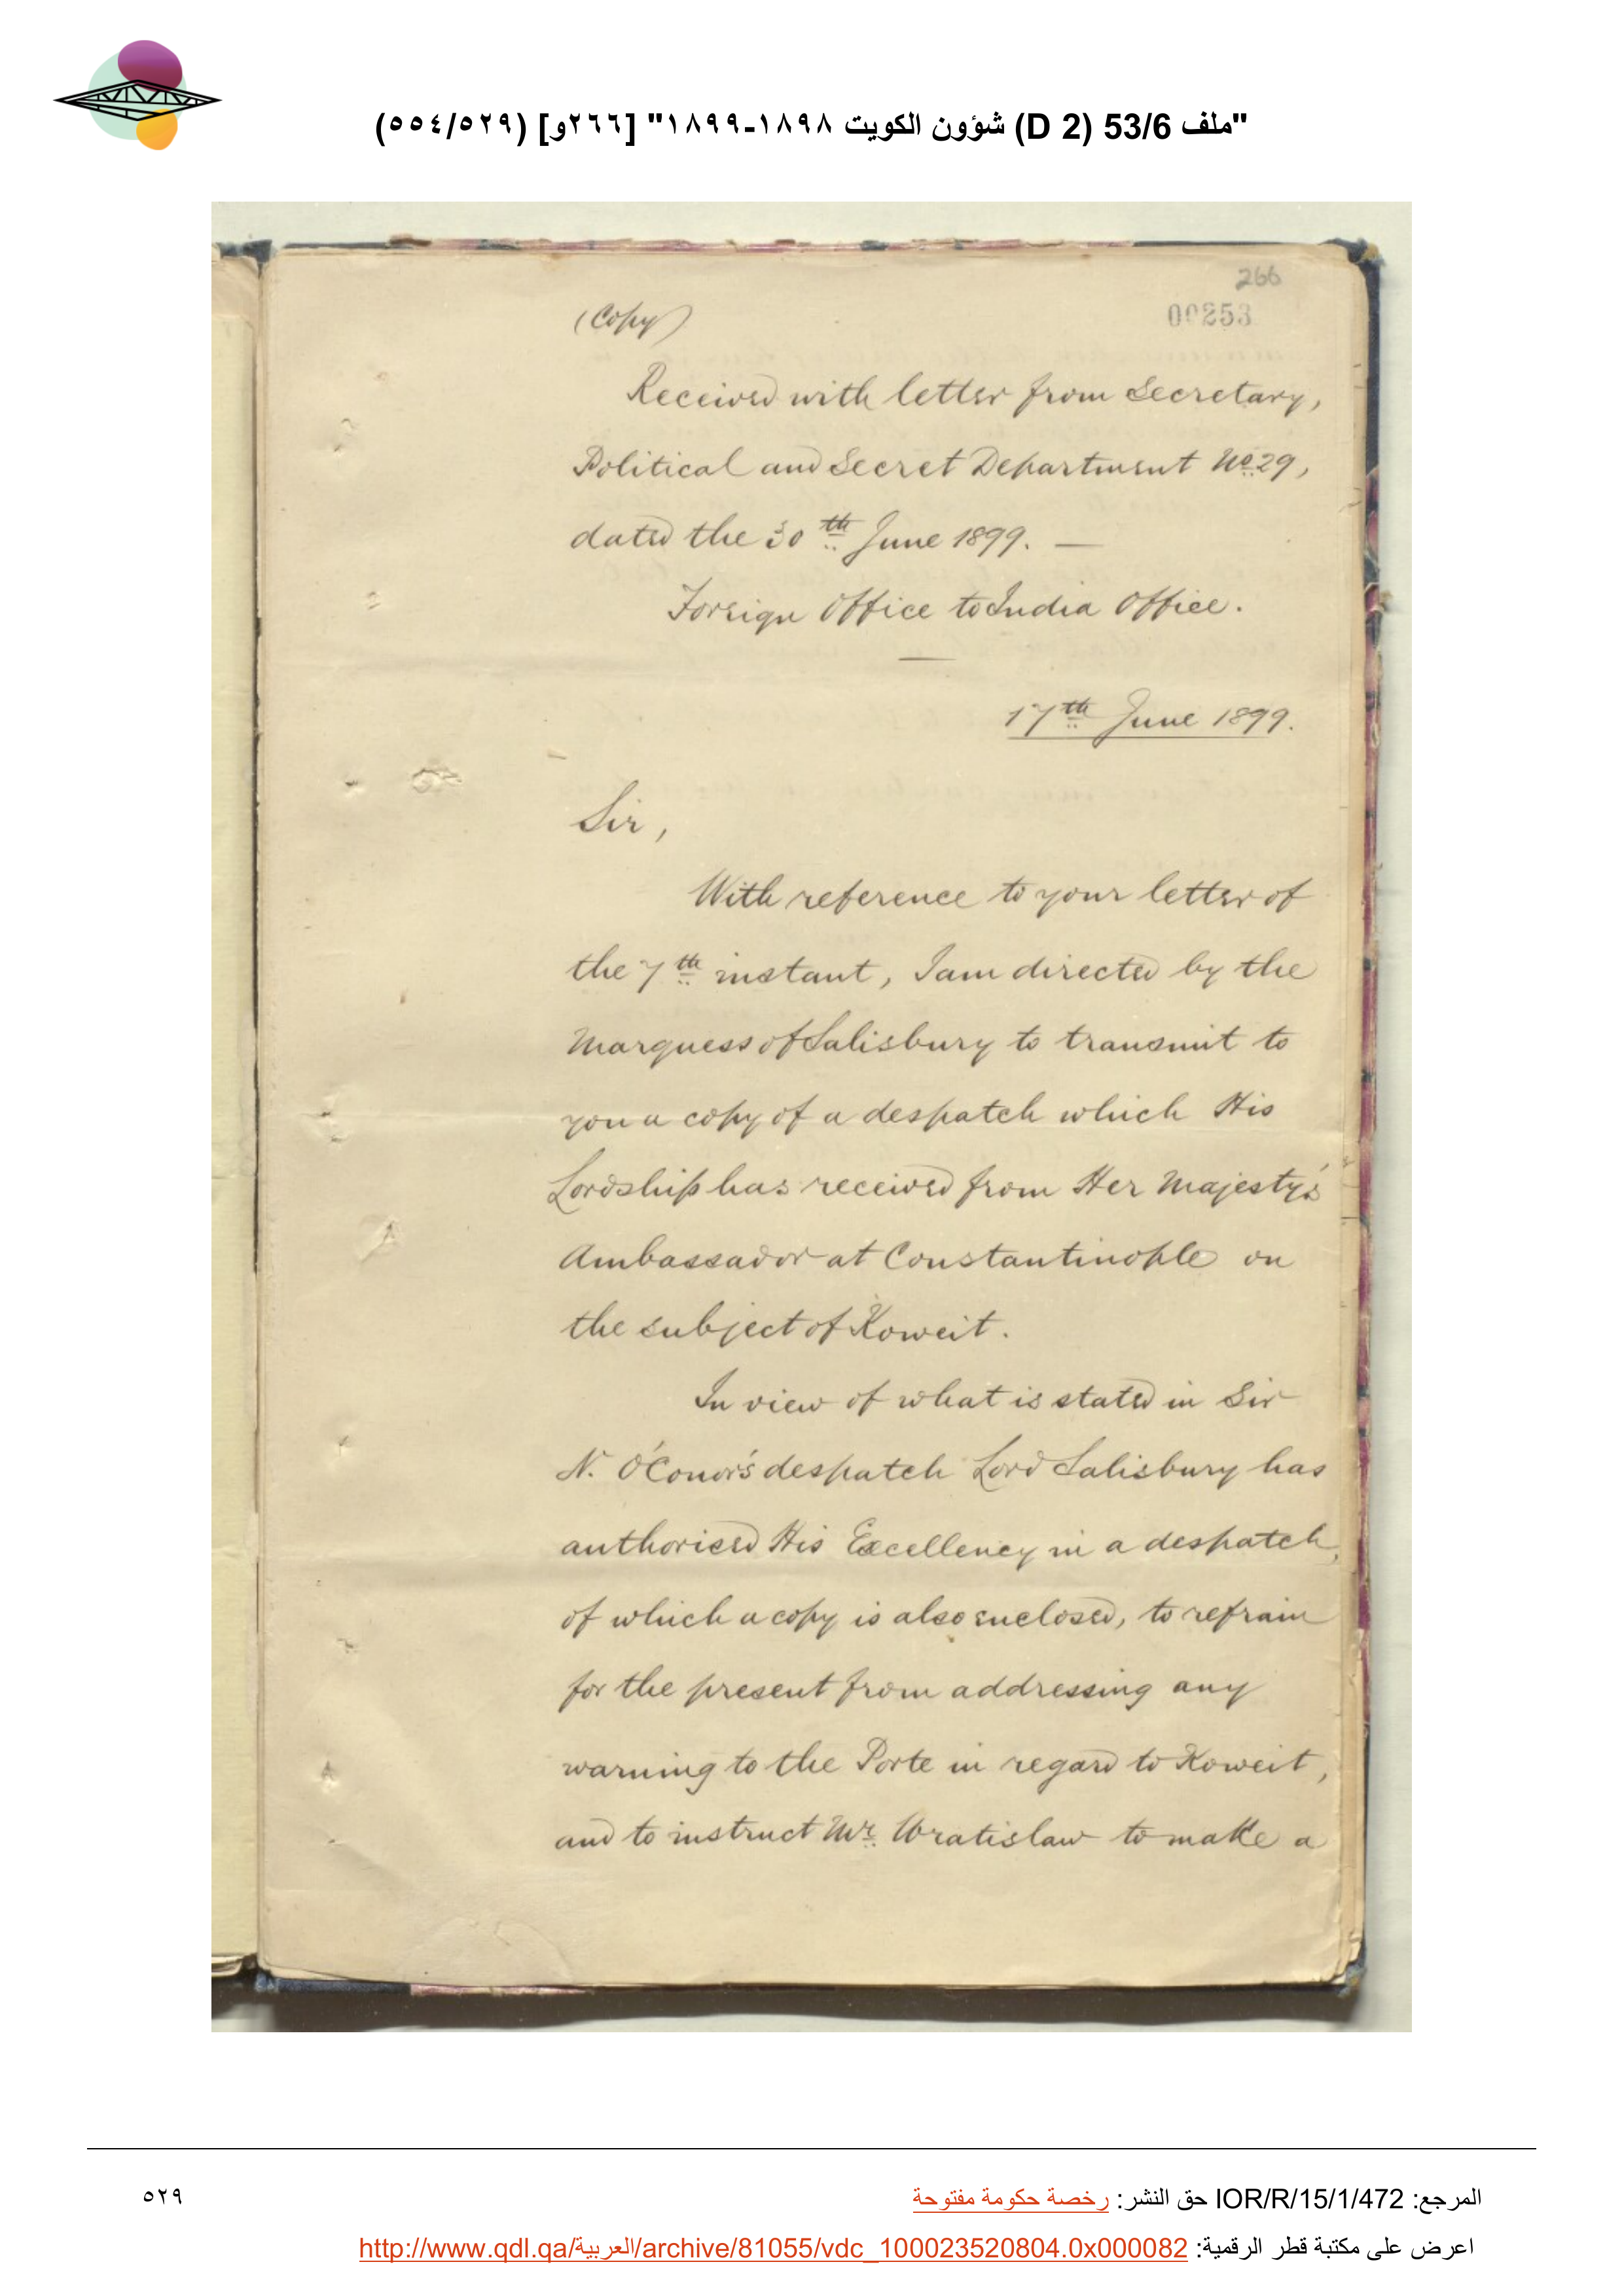 "ملف 53/6 (D 2) شؤون الكويت ١٨٩٨-١٨٩٩" [٢٦٦و] (٥٥٤/٥٢٩)
266
00253
(Copy)
Received with letter from Secretary,
Political and Secret Department No. 29,
dated the 30th June 1899. —
Foreign Office to India Office.
17th June 1899.
Sir,
With reference to your letter of
the 7th instant, I am directed by the
Marquess of Salisbury to transmit to
you a copy of a despatch which His
Lordship has received from Her Majesty's
Ambassador at Constantinople on
the subject of Koweit.
In view of what is stated in Sir
N. O'Conor's despatch Lord Salisbury has
authorised His Excellency in a despatch,
of which a copy is also enclosed, to refrain
for the present from addressing any
warning to the Porte in regard to Koweit,
and to instruct Mr. Wratislaw to make a
المرجع: IOR/R/15/1/472 حق النشر: رخصة حكومة مفتوحة
٥٢٩
اعرض على مكتبة قطر الرقمية: http://www.qdl.qa/العربية/archive/81055/vdc_100023520804.0x000082